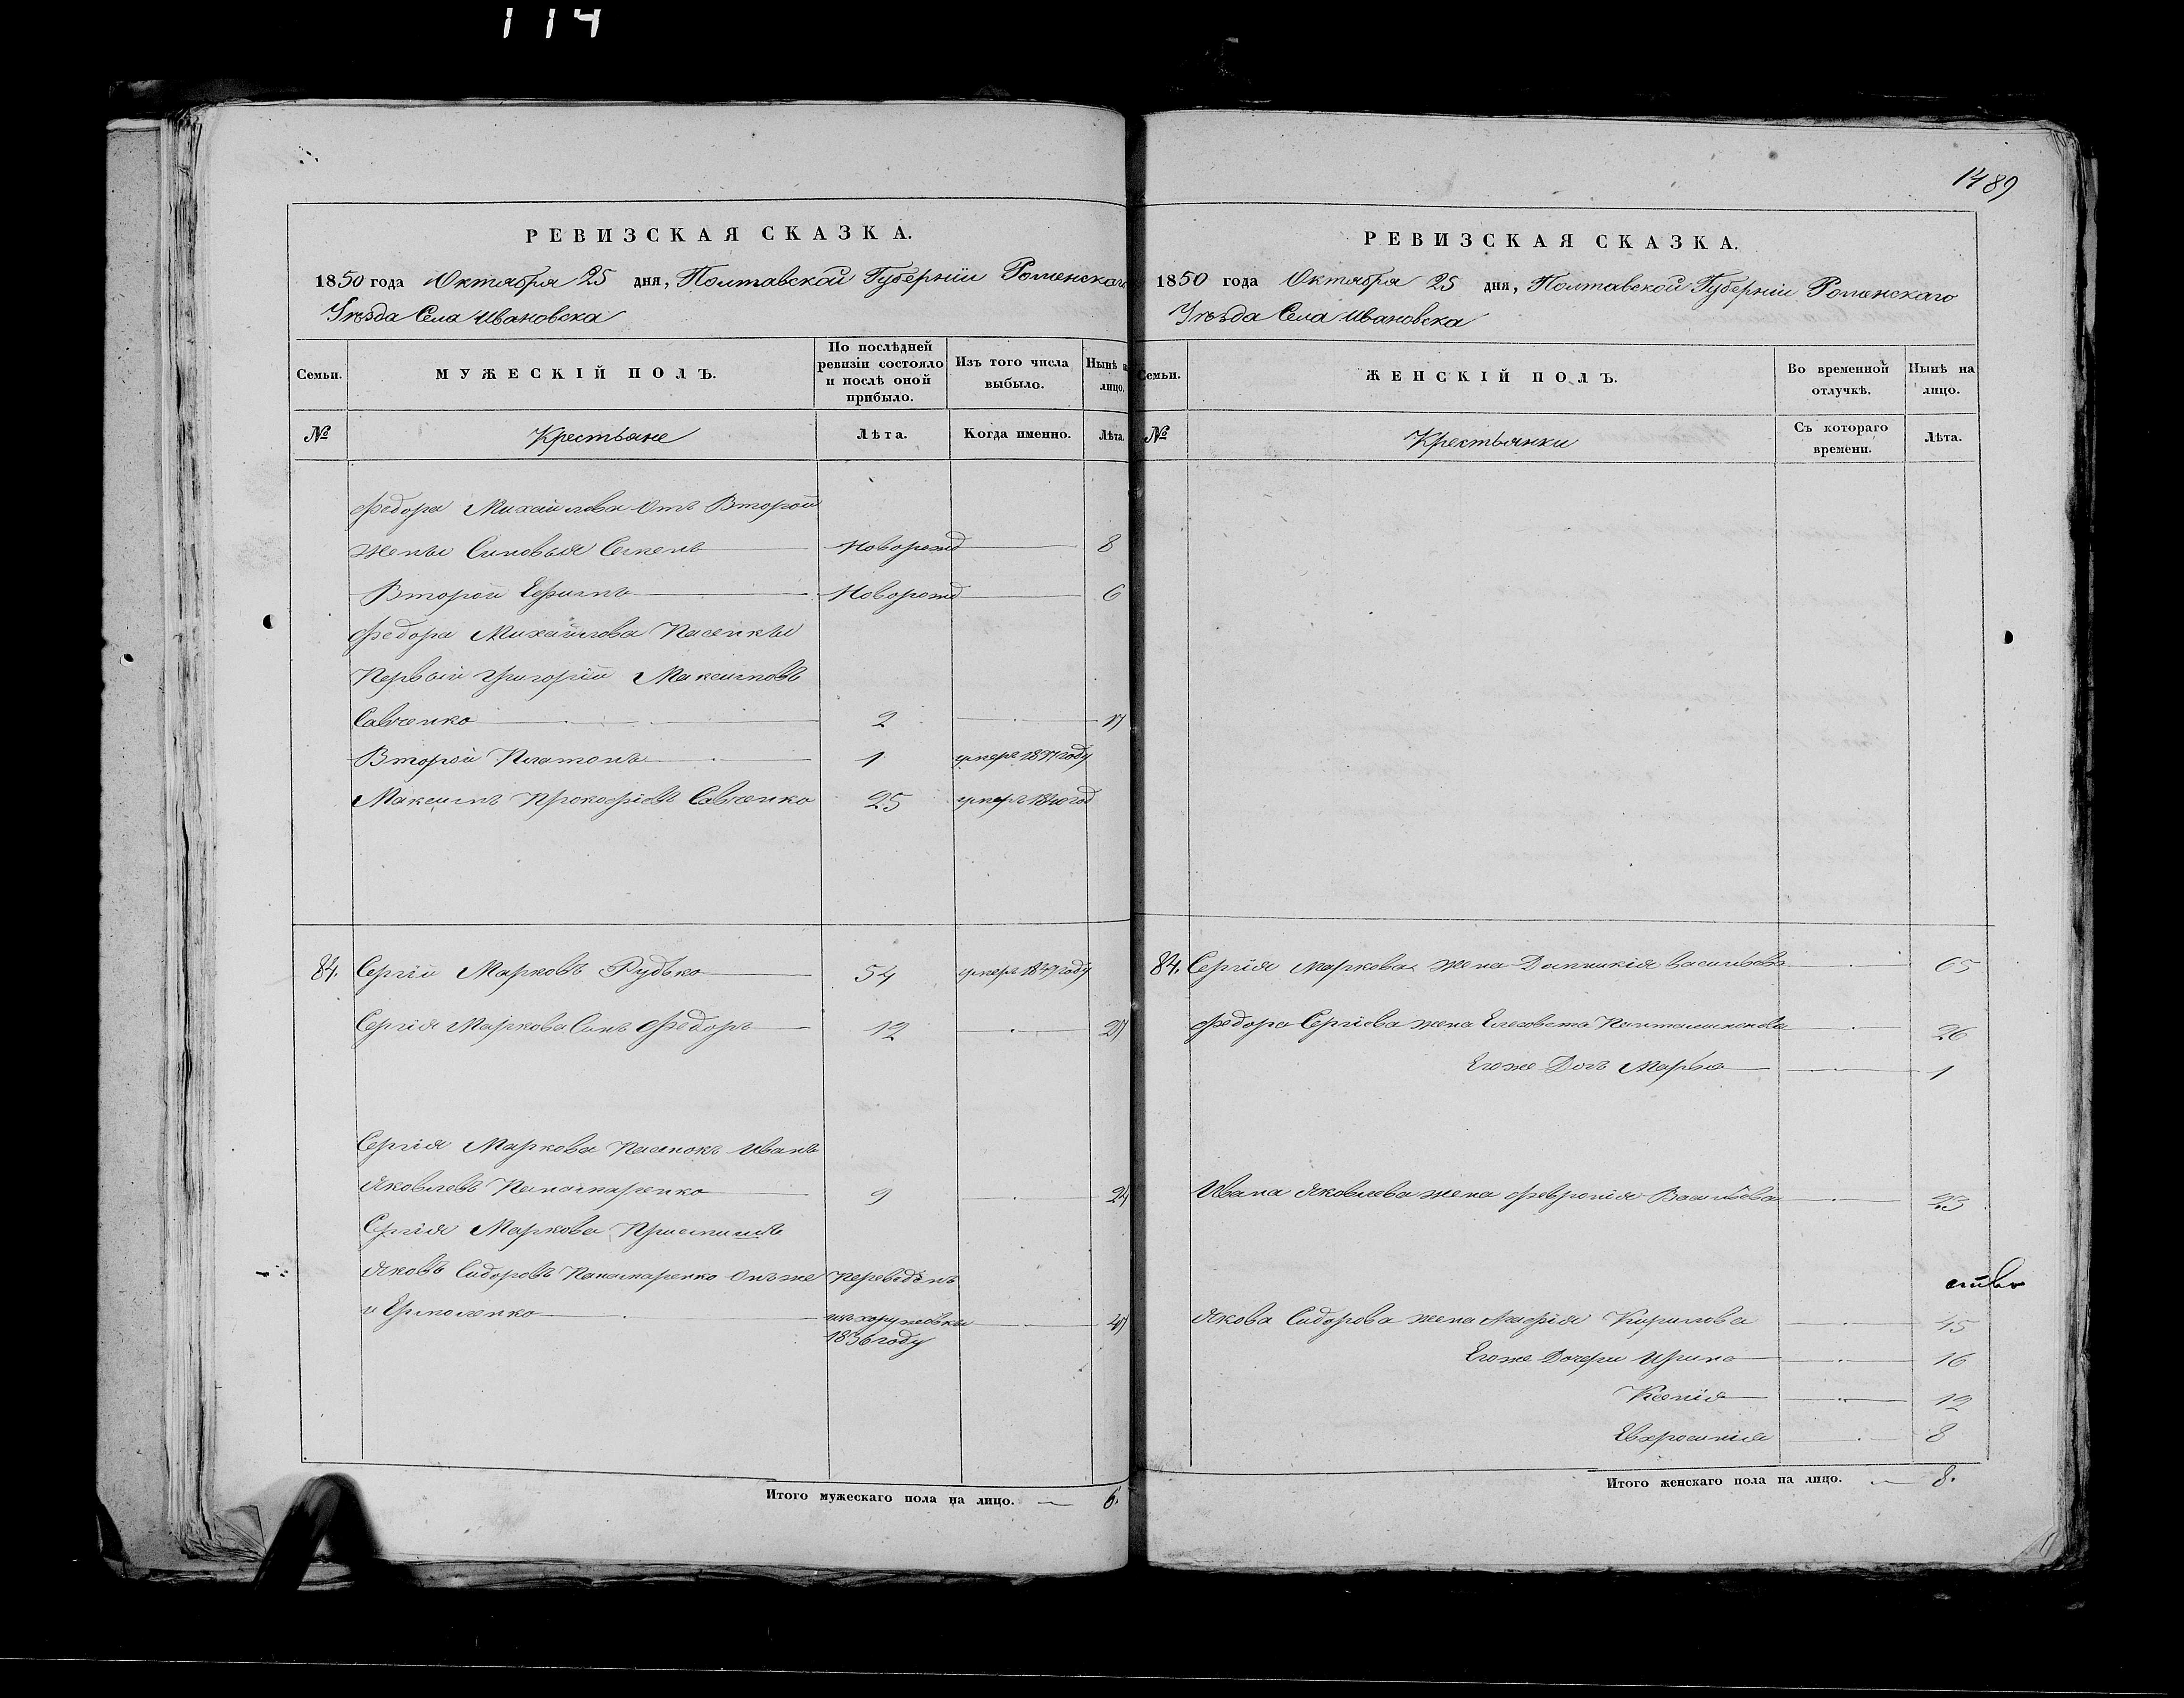 114
1489
РЕВИЗСКАЯ СКАЗКА.
1850 года Октября 25 дня, Полтавской Губерніи Роменскаго
Уѣзда Села Ивановска
Семьи.
МУЖЕСКІЙ ПОЛЪ.
По послѣдней ревизіи состояло и послѣ оной прибыло.
Изъ того числа выбыло.
Нынѣ на лицо.
№
Крестьяне
Лѣта.
Когда именно.
Лѣта.
Федора Михайлова Отъ Второй
жены Сыновья Семенъ Новорожд 8
Второй Ефимъ Новорожд 6
Федора Михайлова Пасенкы
Первый Григорій Максимовъ
Савченко 2 17
Второй Платонъ 1 умеръ году
Максимъ Прокофіевъ Савченко 25 умеръ 1840 год
84. Сергій Марковъ Рудько 54 умеръ 1847 году
Сергія Маркова Синъ Федоръ 12 27
Сергія Маркова Пасинокъ Иванъ
Яковлевъ Панамаренко 9 24
Сергія Маркова
Яковъ Сидоровъ Панамаренко Онъ же Переведенъ
и Ермоленко изъ Хоружовки 47
1836 году
Итого мужескаго пола на лицо. 6.
РЕВИЗСКАЯ СКАЗКА.
1850 года Октября 25 дня, Полтавской Губерніи Роменскаго
Уѣзда Села Ивановска
Семьи.
ЖЕНСКІЙ ПОЛЪ.
Во временной отлучкѣ.
Нынѣ на лицо.
№
Крестьянки
Съ котораго времени.
Лѣта.
84. Сергія Маркова жена Домникія Васильева 65
Федора Сергіева жена Елисавета Пантелимонова 26
Егоже Дочь Марья 1
Ивана Яковлева жена Февронія Васильева 23
Якова Сидорова жена Кирилова 45
Егоже Дочери Ирина 16
Ксенія 12
Евхросинія 8
Итого женскаго пола на лицо. 8.